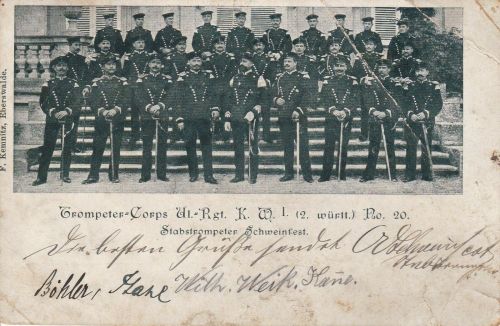 F. Kemnitz, Eberswalde.
Trompeter-Corps Ul.-Rgt. K. W. I. (2. württ.) No. 20.
Stabstrompeter Schweinfest.
Die besten Grüße sendet
Böhler, Wilh. Weik.